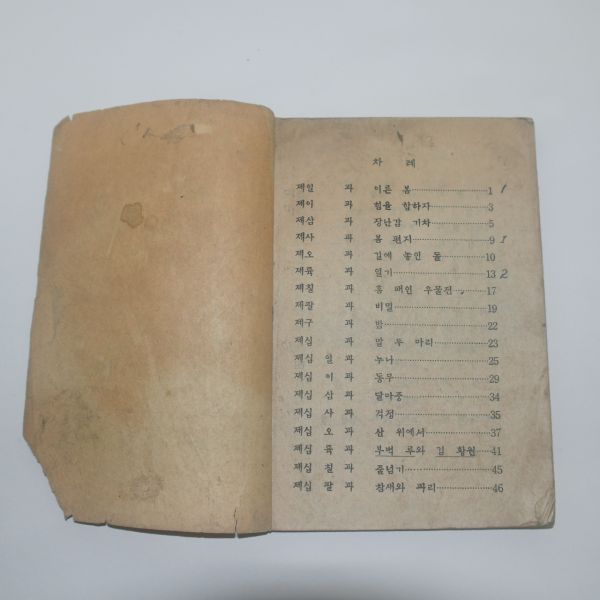 차 례
제일 과 이른 봄 1 1
제이 과 힘을 합하자 3
제삼 과 장난감 기차 5
제사 과 봄 편지 9 1
제오 과 길에 놓인 돌 10
제륙 과 일기 13 2
제칠 과 흠 매인 우물전 17
제팔 과 비밀 19
제구 과 밤 22
제십 과 말 두 마리 23
제십 일 과 누나 25
제십 이 과 동무 29
제십 삼 과 달마중 34
제십 사 과 걱정 35
제십 오 과 산 위에서 37
제십 륙 과 부벽 루와 김 황원 41
제십 칠 과 줄넘기 45
제십 팔 과 참새와 파리 46